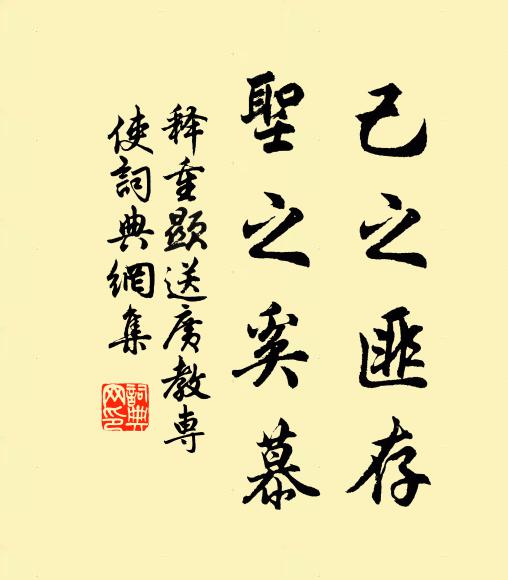 己之匪存
聖之奚慕
释重顯送廣教專
使詞典網集
詞典
网印